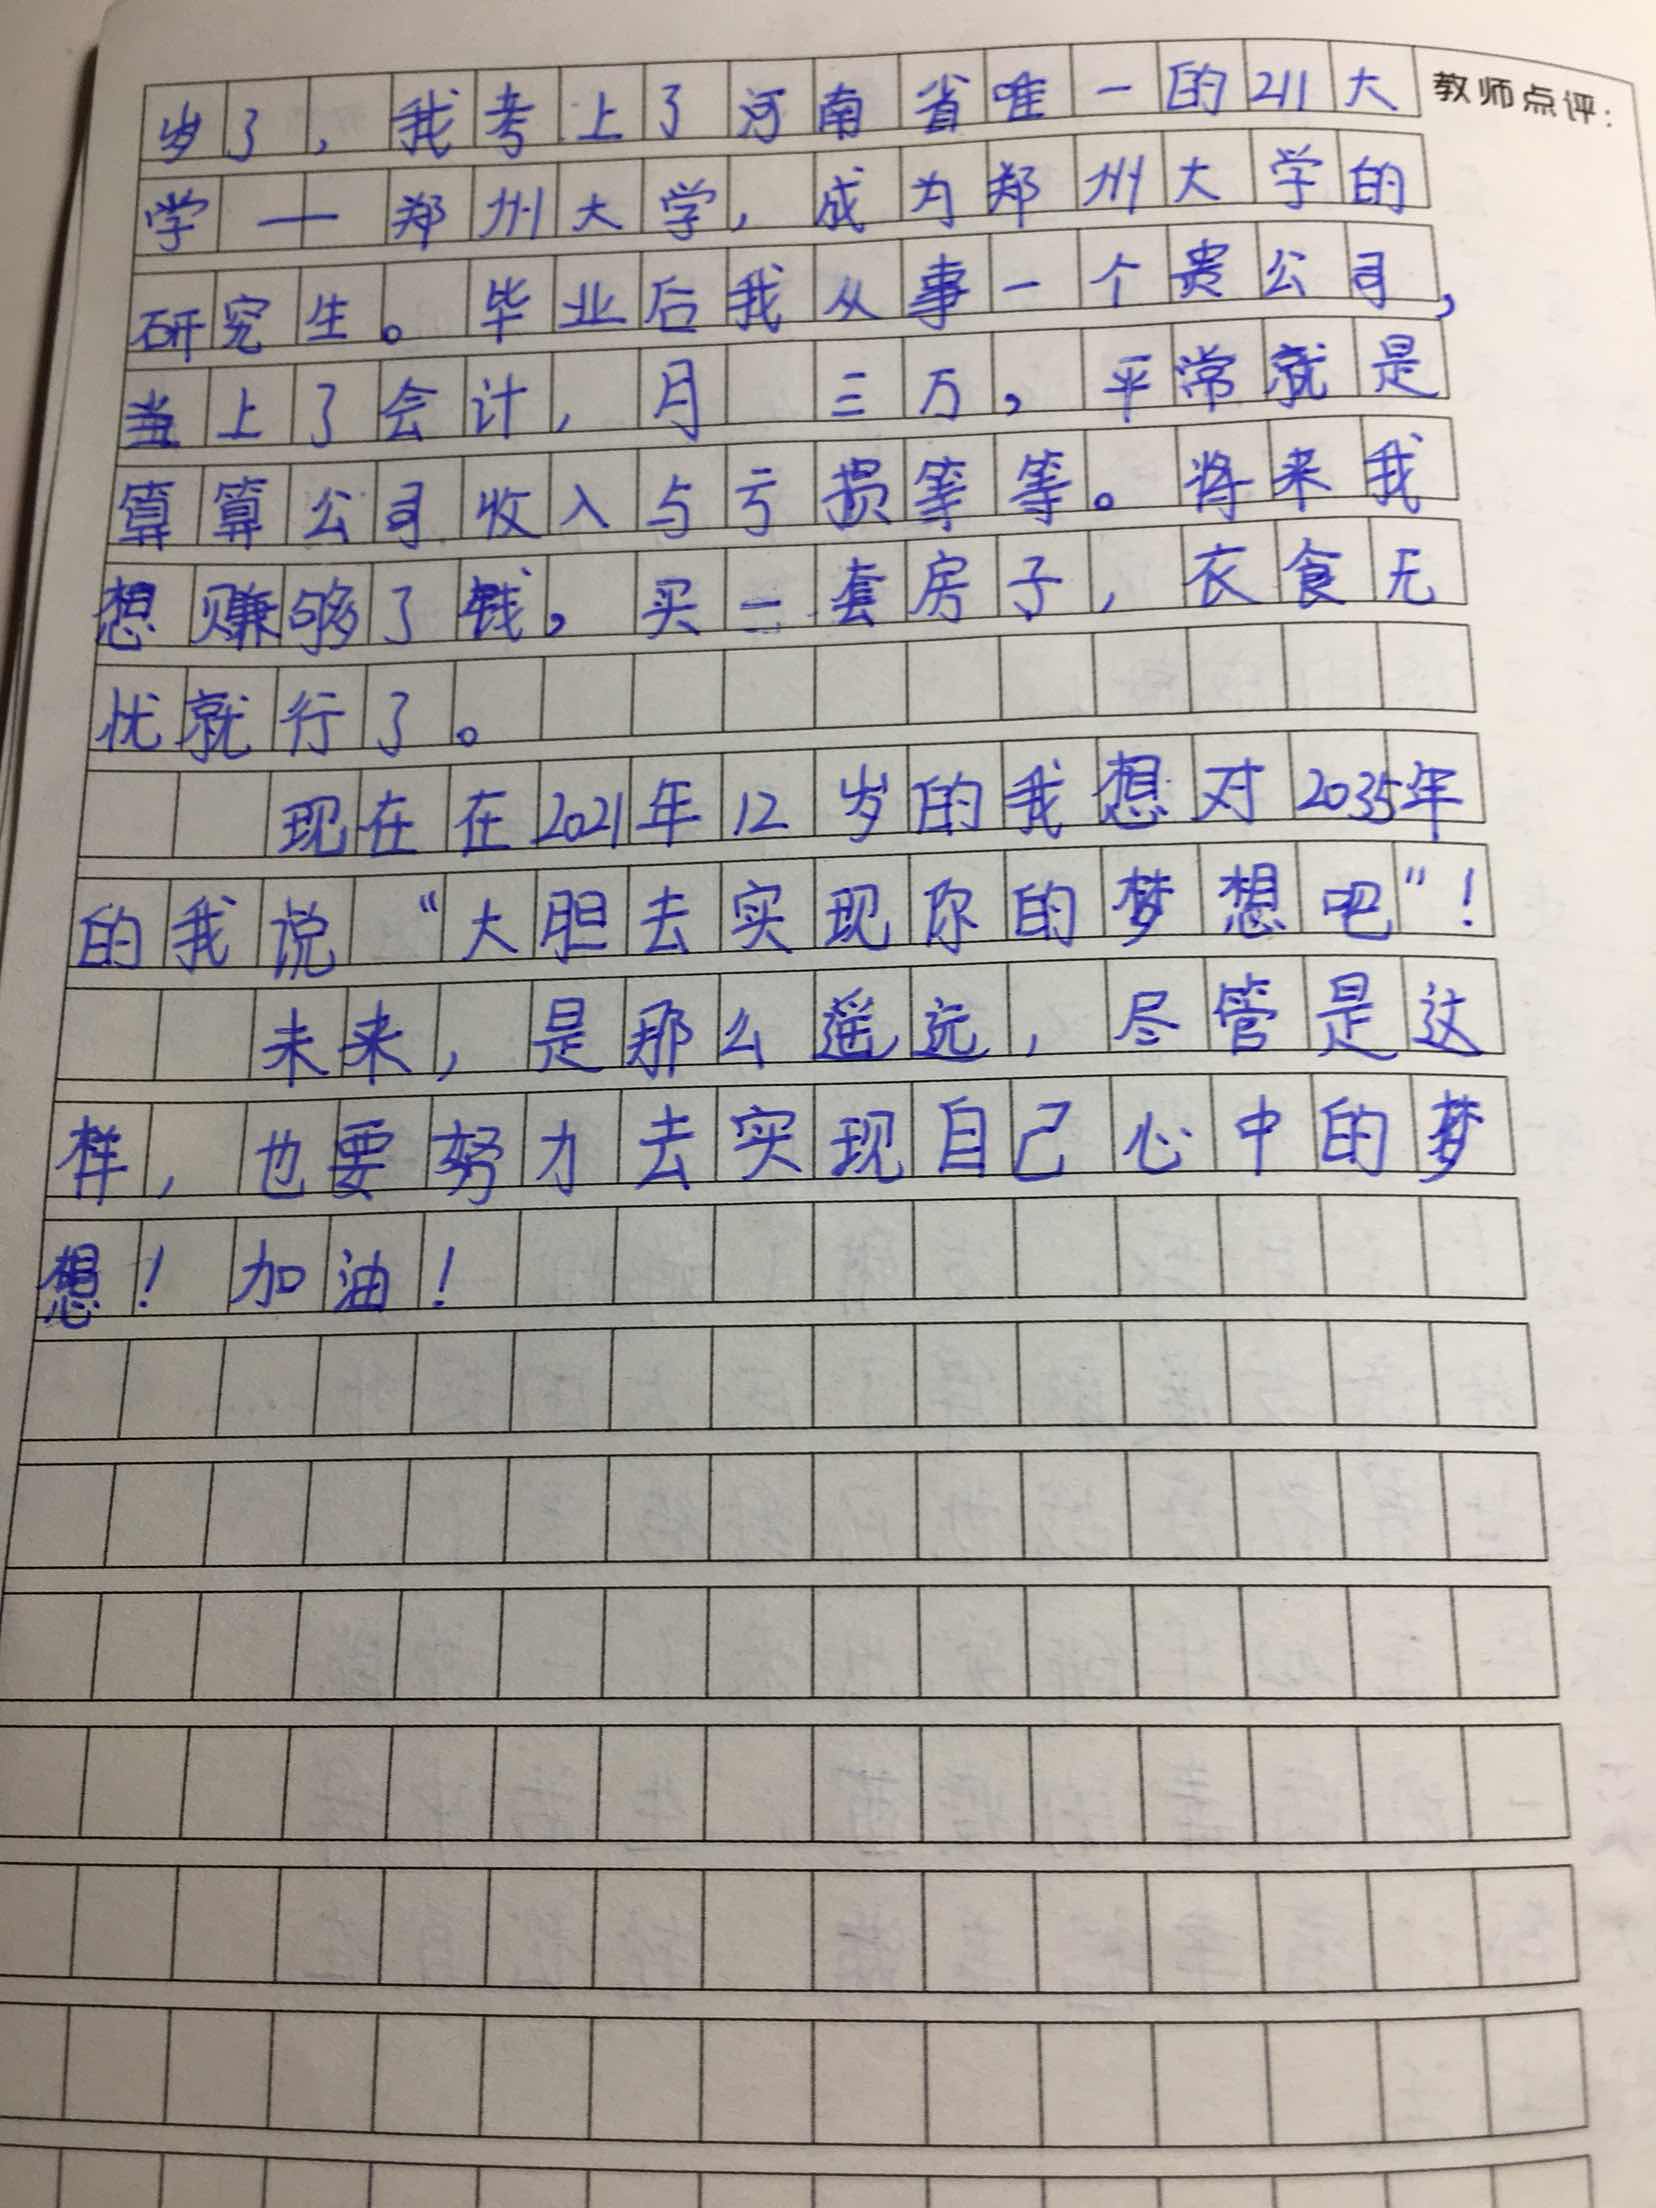 教师点评：
岁了，我考上了河南省唯一的211大
学——郑州大学，成为郑州大学的
研究生。毕业后我从事一个贵公司，
当上了会计，月 三万，平常就是
算算公司收入与亏损等等。将来我
想赚够了钱，买一套房子，衣食无
忧就行了。
现在在2021年12岁的我想对2035年
的我说 “大胆去实现你的梦想吧”！
未来，是那么遥远，尽管是这
样，也要努力去实现自己心中的梦
想！加油！